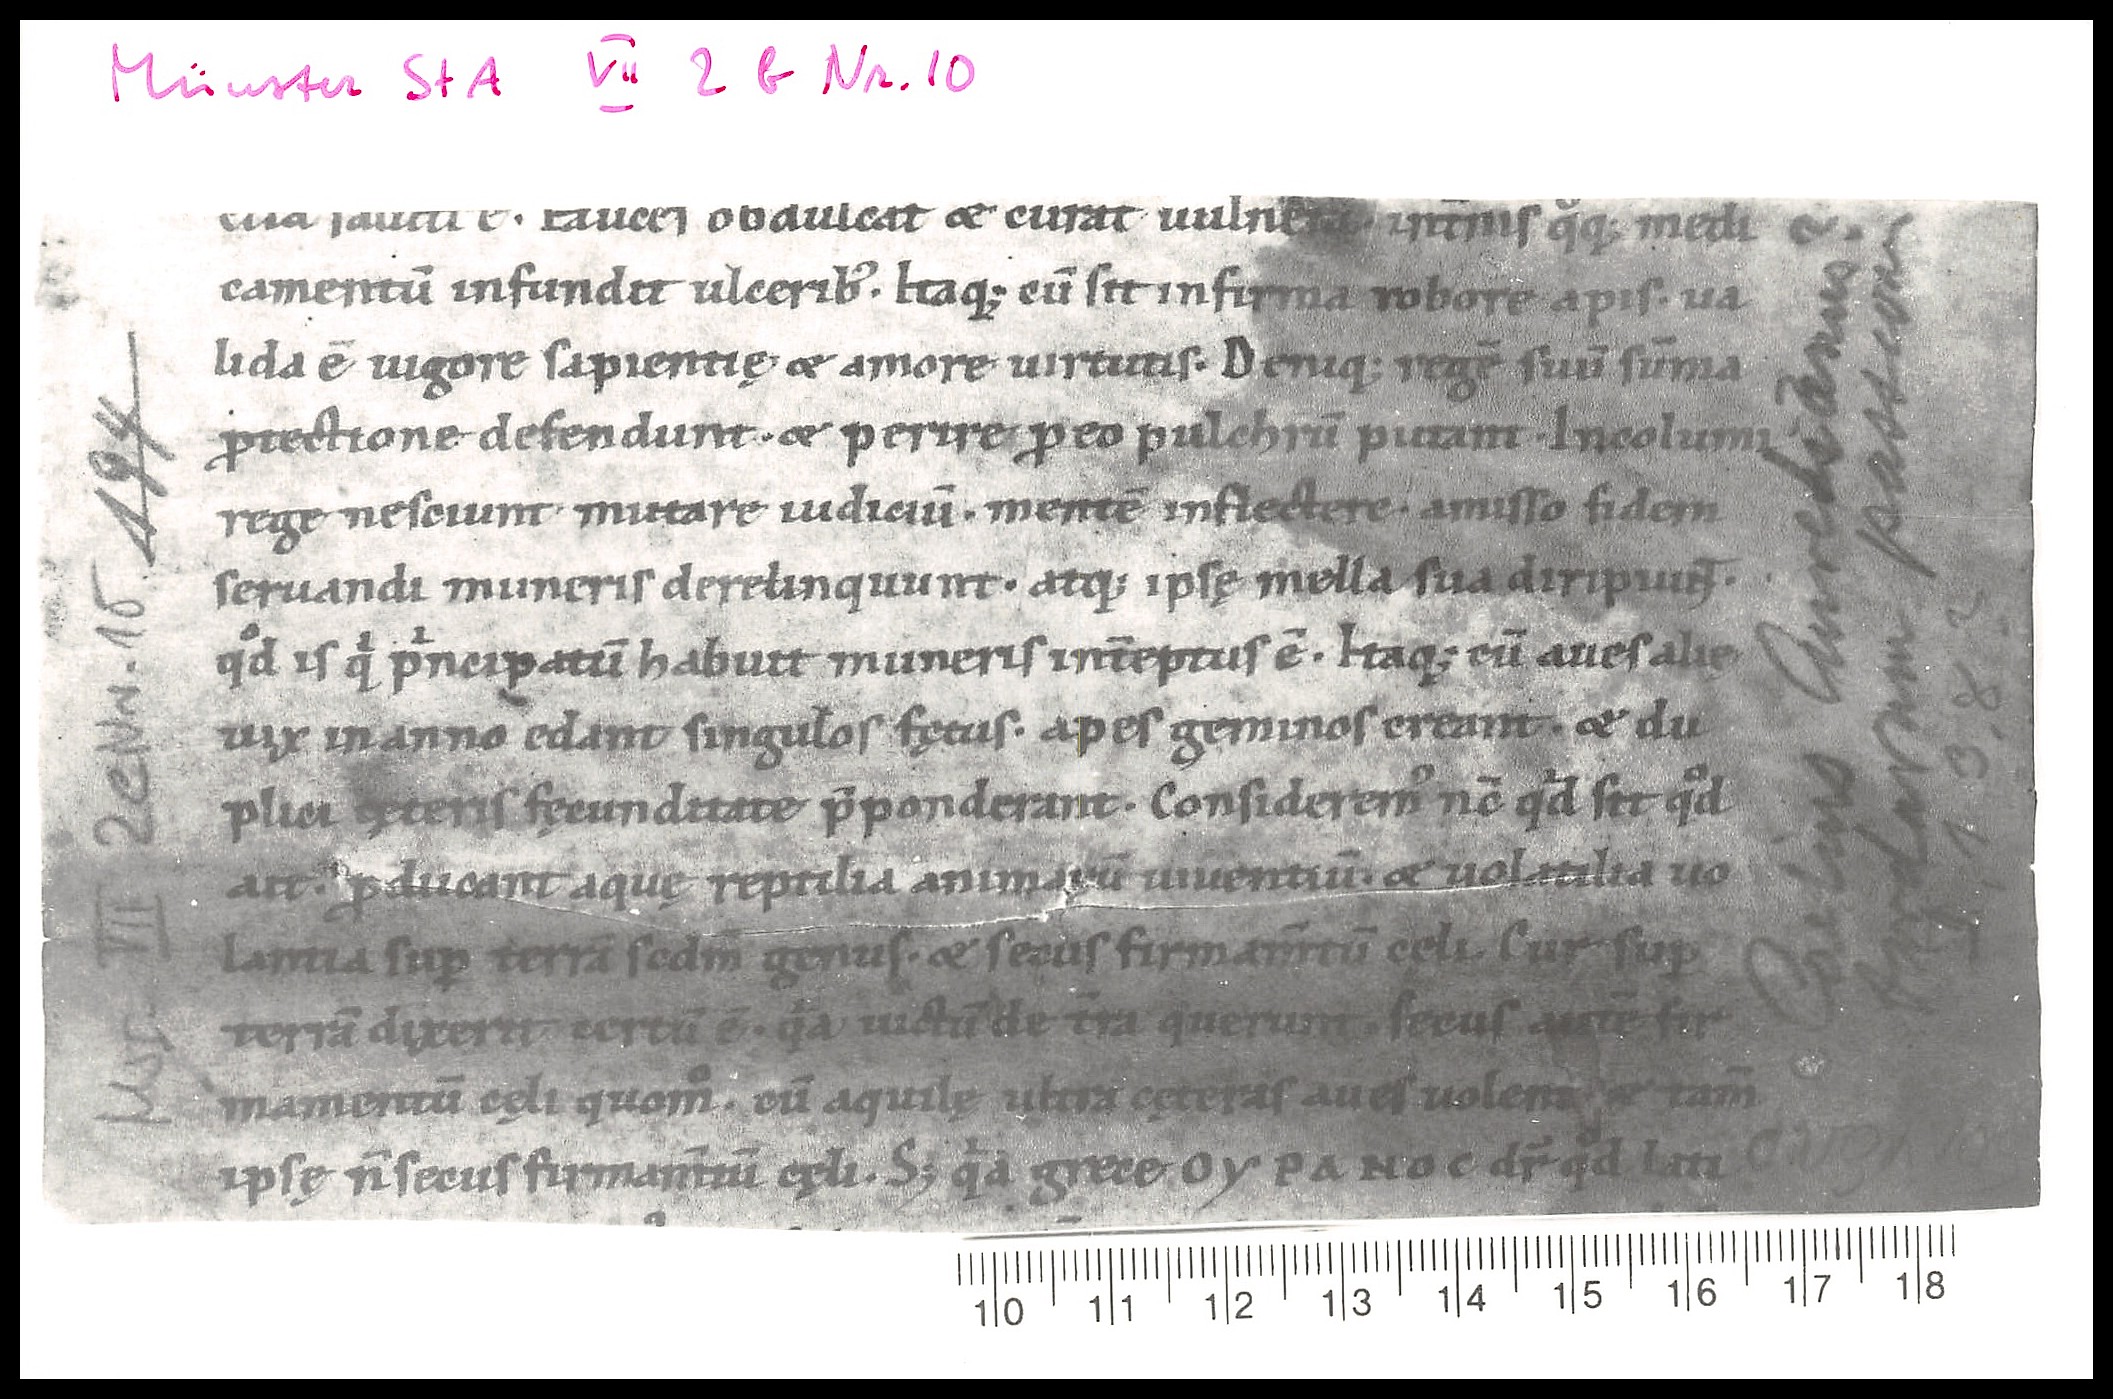 Münster StA VII 2 b Nr. 10
fauces obdulcat & curat uulnera. int̄nis q̊q; medi
camentū infundit ulcerib᾿. Itaq; cū sit infirma robore apis. ua
lida ē uigore sapientię & amore uirtutis. Deniq; regē suū sūma
ꝓtectione defendunt. & perire ꝓ eo pulchrū putant. Incolumi
rege nesciunt mutare iudiciū. mentē inflectere. amisso fidem
seruandi muneris derelinquunt. atq; ipsę mella sua diripiunt.
qͦd is qͥ pͥncipatū habuit muneris int̄eptus ē. Itaq; cū aues alię
uix in anno edant singulos fętus. apes geminos creant. & du
plici cęteris fęcunditate p̄ponderant. Consideremꝰ nc̄ qͥd sit qͦd
ait. ꝓducant aquę reptilia animarū uiuentiū. & uolatilia uo
lantia suꝑ terrā scdm̄ genus. & secus firmam̄tū cęli. Cur suꝑ
terrā dixerit certū ē. qͣa uictū de t̄ra querunt. secus autē fir
mamentū cęli quom̊. cū aquilę ultra cęteras aues uolent & tam̄
ipsę n̄ secus firmam̄tū cęli. S; qͥa grece ΟΥΡΑΝΟC dr̄ qͦd lati
194
Msc. VII 2e Nr. 10